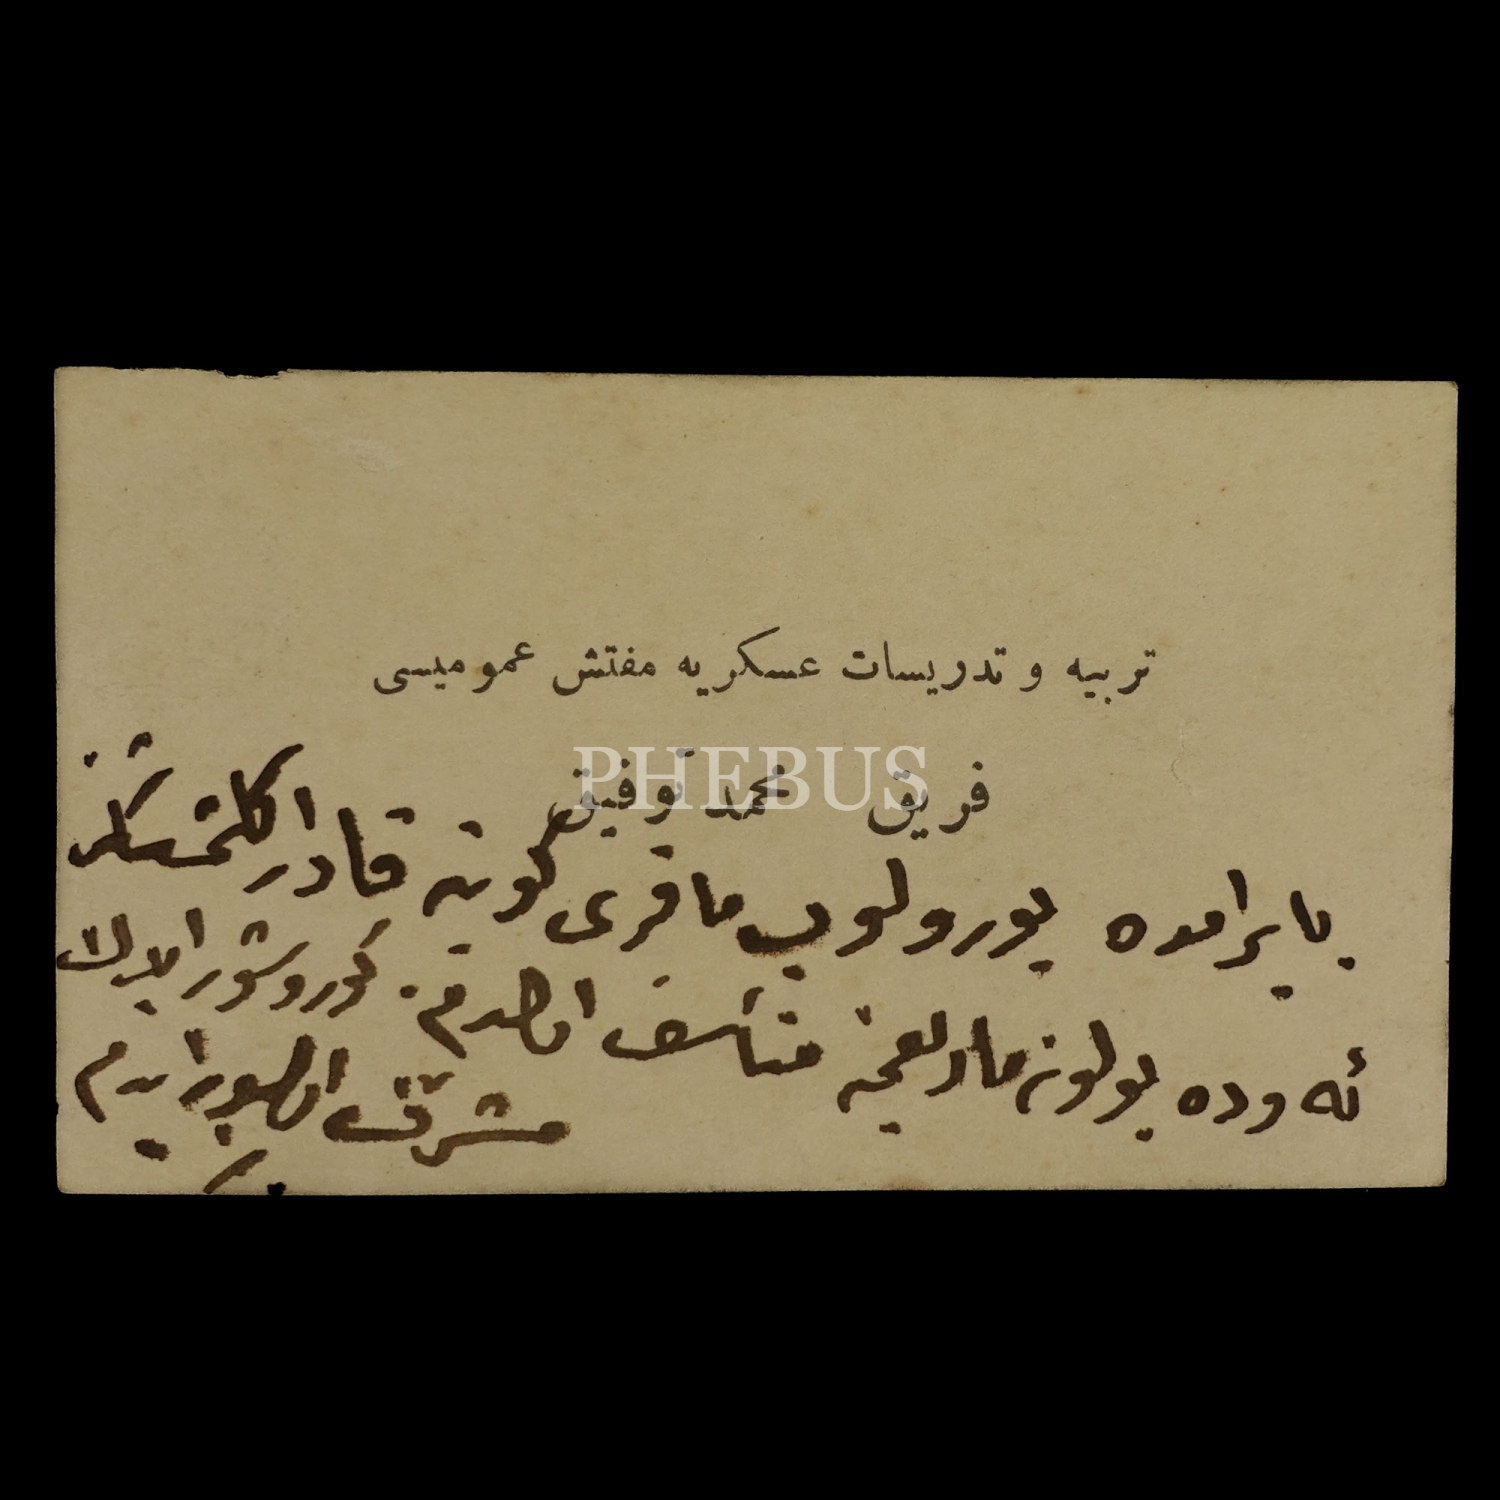 تربیه و تدریسات عسکریه مفتش عمومیسی
فریق محمد توفیق
PHEBUS
بایرامده یورولوب ماقری کوینه قادر کلمشسکز
ئه وده بولونمادیغمه متأسف اولدم. کوروشور ایدك
مشرف اولور ایدم